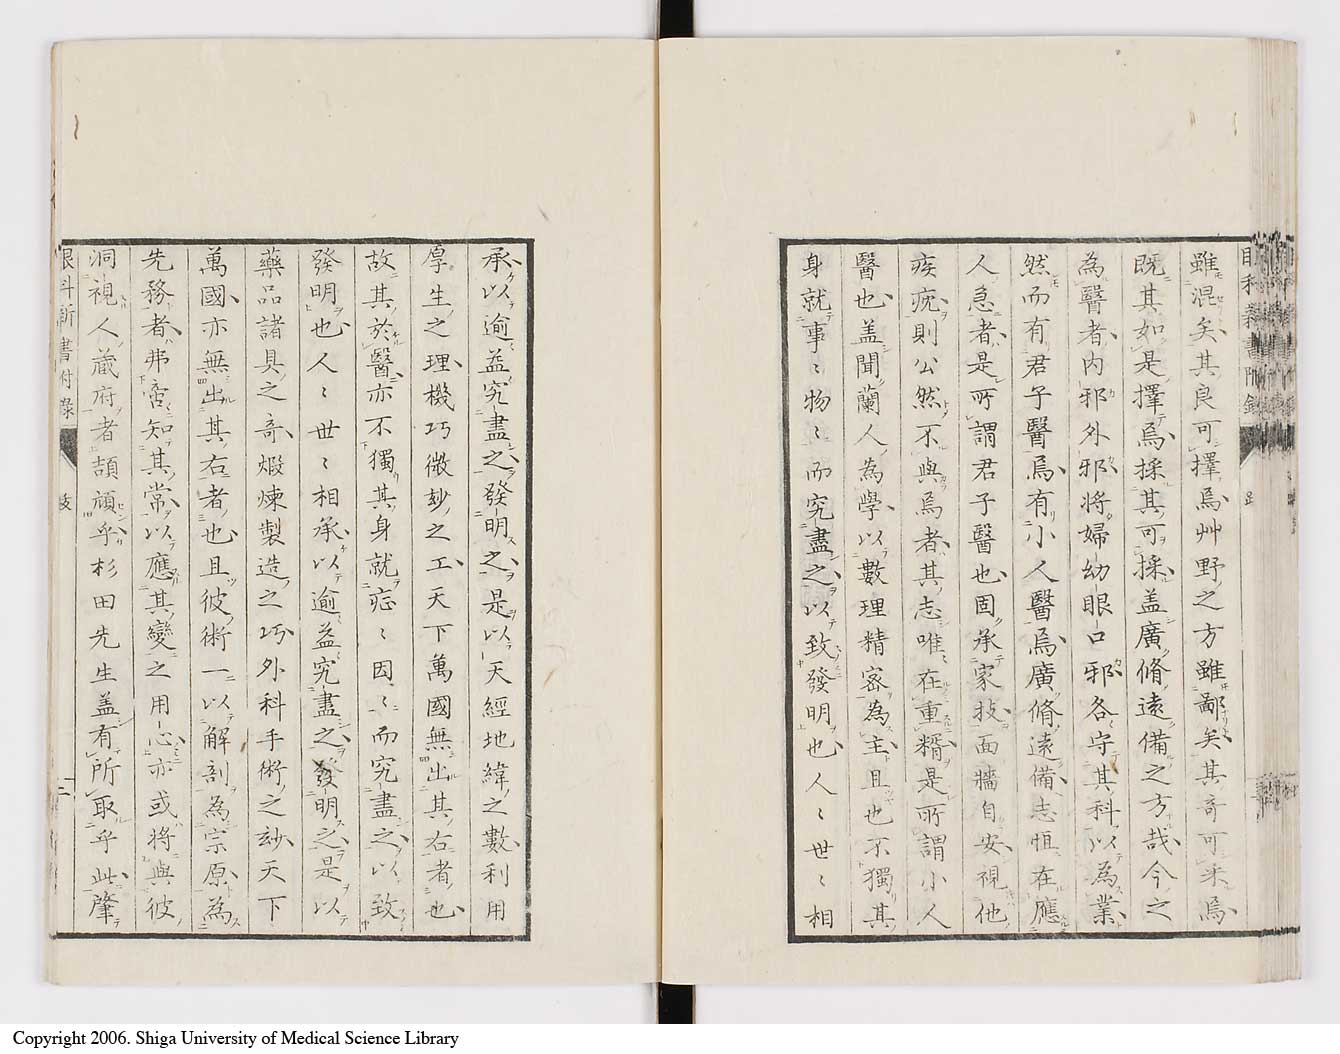 雖混矣其良可擇焉艸野之方雖鄙矣其奇可采焉
既其如是擇焉採其可採盖廣脩遠備之方哉今之
為醫者內邪外邪将婦幼眼口邪各守其科以為業
然而有君子醫焉有小人醫焉廣脩遠備志恒在應
人急者是所謂君子醫也固承家技面牆自安視他
疾疣則公然不與焉者其志唯在重糈是所謂小人
醫也盖聞蘭人為學以數理精密為主且也不獨其
身就事〻物〻而究盡之以致發明也人〻世〻相
承以逾益究盡之發明之是以天經地緯之數利用
厚生之理機巧微玅之工天下萬國無出其右者也
故其於醫亦不獨其身就症〻因〻而究盡之以致
發明也人〻世〻相承以逾益究盡之發明之是以
藥品諸具之奇煅煉製造之巧外科手術之玅天下
萬國亦無出其右者也且彼術一以解剖為宗原為
先務者弗啻知其常以應其變之用心亦或将與彼
洞視人藏府者頡頏乎杉田先生盖有所取乎此肇
眼科新書附錄
跋
二
Copyright 2006. Shiga University of Medical Science Library